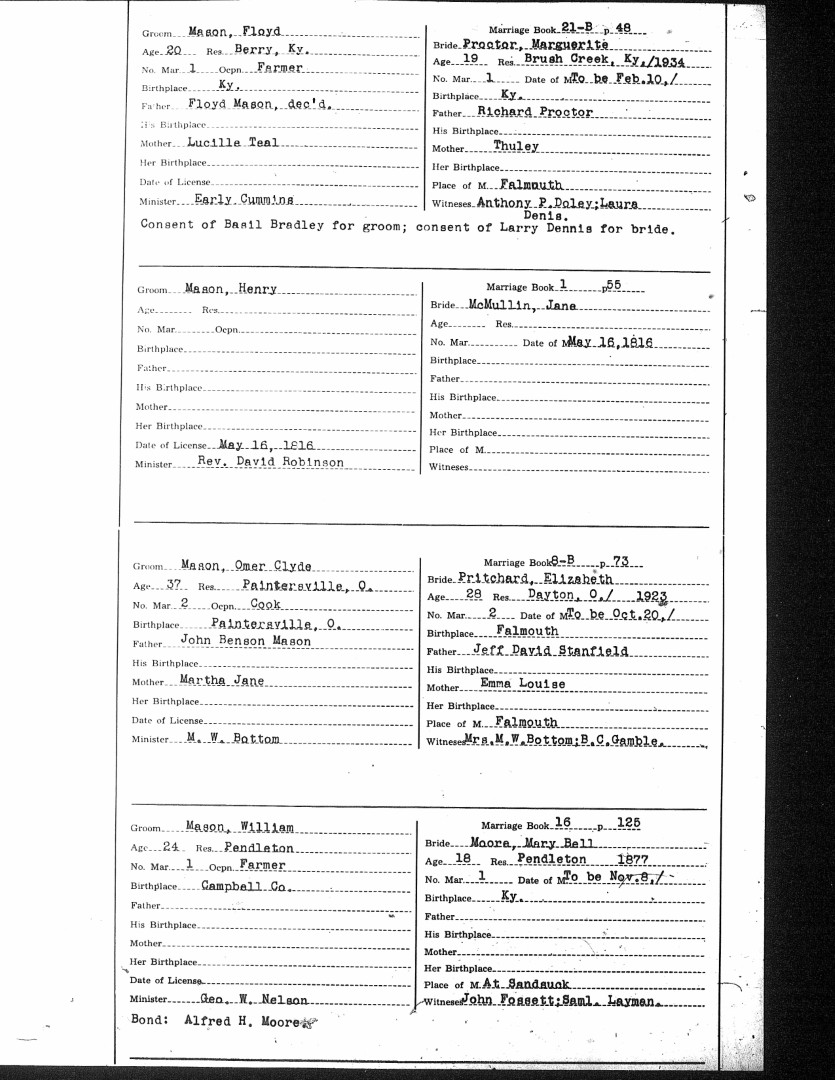 Groom Mason, Floyd
Age 20 Res. Berry, Ky.
No. Mar. 1 Ocpn. Farmer
Birthplace Ky.
Father Floyd Mason, dec'd.
His Birthplace
Mother Lucille Teal
Her Birthplace
Date of License
Minister Early Cummins
Marriage Book 21-B p. 48
Bride Proctor, Marguerite
Age 19 Res. Brush Creek, Ky./1934
No. Mar. 1 Date of M. To be Feb.10,/
Birthplace Ky.
Father Richard Proctor
His Birthplace
Mother Thuley
Her Birthplace
Place of M. Falmouth
Witnesses Anthony P.Doley;Laura
Denis.
Consent of Basil Bradley for groom; consent of Larry Dennis for bride.
Groom Mason, Henry
Age Res.
No. Mar. Ocpn.
Birthplace
Father
His Birthplace
Mother
Her Birthplace
Date of License May 16, 1816
Minister Rev. David Robinson
Marriage Book 1 p55
Bride McMullin, Jane
Age Res.
No. Mar. Date of M. May 16,1816
Birthplace
Father
His Birthplace
Mother
Her Birthplace
Place of M.
Witnesses
Groom Mason, Omer Clyde
Age 37 Res. Paintersville, O.
No. Mar. 2 Ocpn. Cook
Birthplace Paintersville, O.
Father John Benson Mason
His Birthplace
Mother Martha Jane
Her Birthplace
Date of License
Minister M. W. Bottom
Marriage Book 8-B p. 73
Bride Pritchard, Elizabeth
Age 28 Res. Dayton, O./ 1923
No. Mar. 2 Date of M. To be Oct.20,/
Birthplace Falmouth
Father Jeff David Stanfield
His Birthplace
Mother Emma Louise
Her Birthplace
Place of M. Falmouth
Witnesses Mrs.M.W.Bottom;B.C.Gamble.
Groom Mason, William
Age 24 Res. Pendleton
No. Mar. 1 Ocpn. Farmer
Birthplace Campbell Co.
Father
His Birthplace
Mother
Her Birthplace
Date of License
Minister Geo. W. Nelson
Marriage Book 16 p. 125
Bride Moore, Mary Bell
Age 18 Res. Pendleton 1877
No. Mar. 1 Date of M. To be Nov.8,/
Birthplace Ky.
Father
His Birthplace
Mother
Her Birthplace
Place of M. At Sandsuck
Witnesses John Fossett;Saml. Layman.
Bond: Alfred H. Moore